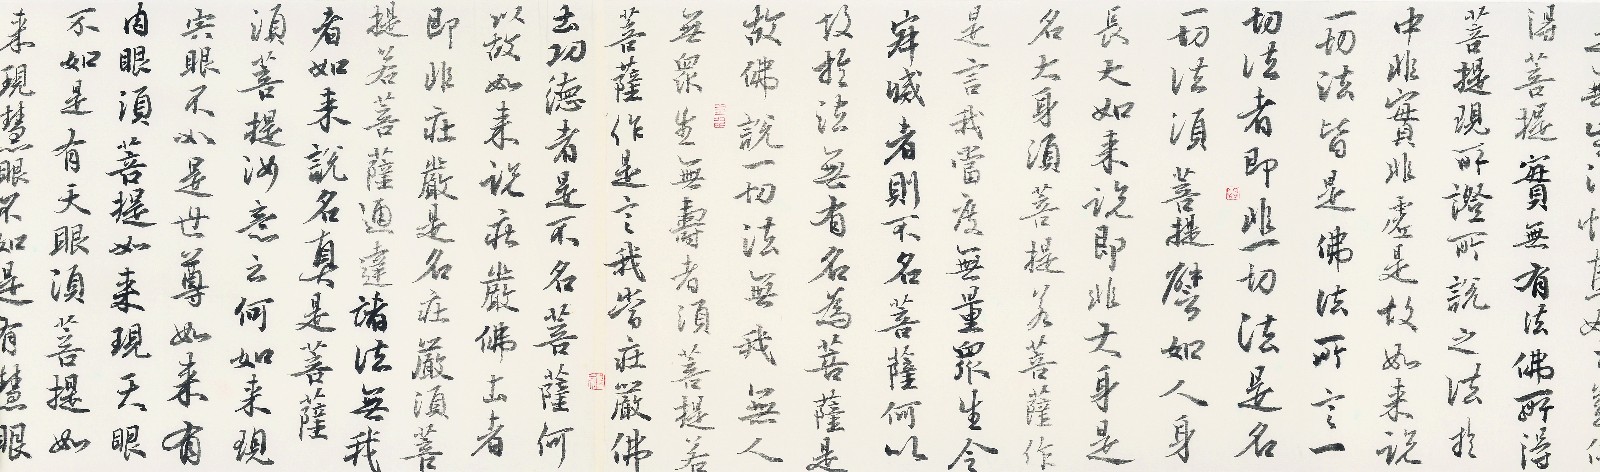 得菩提實無有法佛所得
菩提現所證所說之法於
中非實非虛是故如来說
一切法皆是佛法所言一
切法者即非一切法是名
一切法須菩提譬如人身
長大如来說即非大身是
名大身須菩提若菩薩作
是言我當度無量眾生令
寂滅者則不名菩薩何以
故於法無有名為菩薩是
故佛說一切法無我無人
無眾生無壽者須菩提若
菩薩作是言我當莊嚴佛
土功德者是不名菩薩何
以故如来說莊嚴佛土者
即非莊嚴是名莊嚴須菩
提若菩薩通達諸法無我
者如来說名真是菩薩
須菩提汝意云何如来現
宍眼不如是世尊如来有
肉眼須菩提如来現天眼
不如是有天眼須菩提如
来現慧眼不如是有慧眼